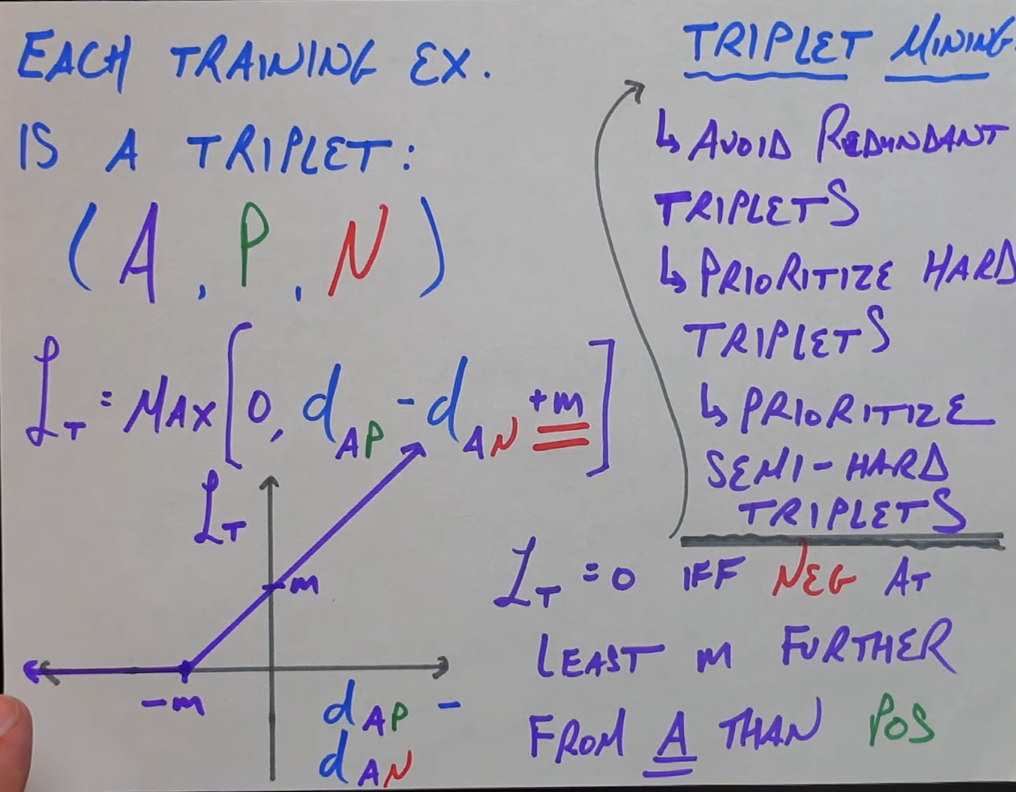 EACH TRAINING EX.
IS A TRIPLET:
(A, P, N)
ℒ_T = MAX[0, d_AP - d_AN +m]
ℒ_T
m
-m
d_AP -
d_AN
TRIPLET MINING
↳ AVOID REDUNDANT
TRIPLETS
↳ PRIORITIZE HARD
TRIPLETS
↳ PRIORITIZE
SEMI-HARD
TRIPLETS
ℒ_T = 0 IFF NEG AT
LEAST m FURTHER
FROM A THAN POS